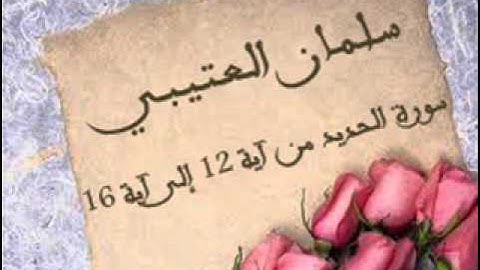 سلمان العتيبي
سورة الحديد من آية 12 إلى آية 16